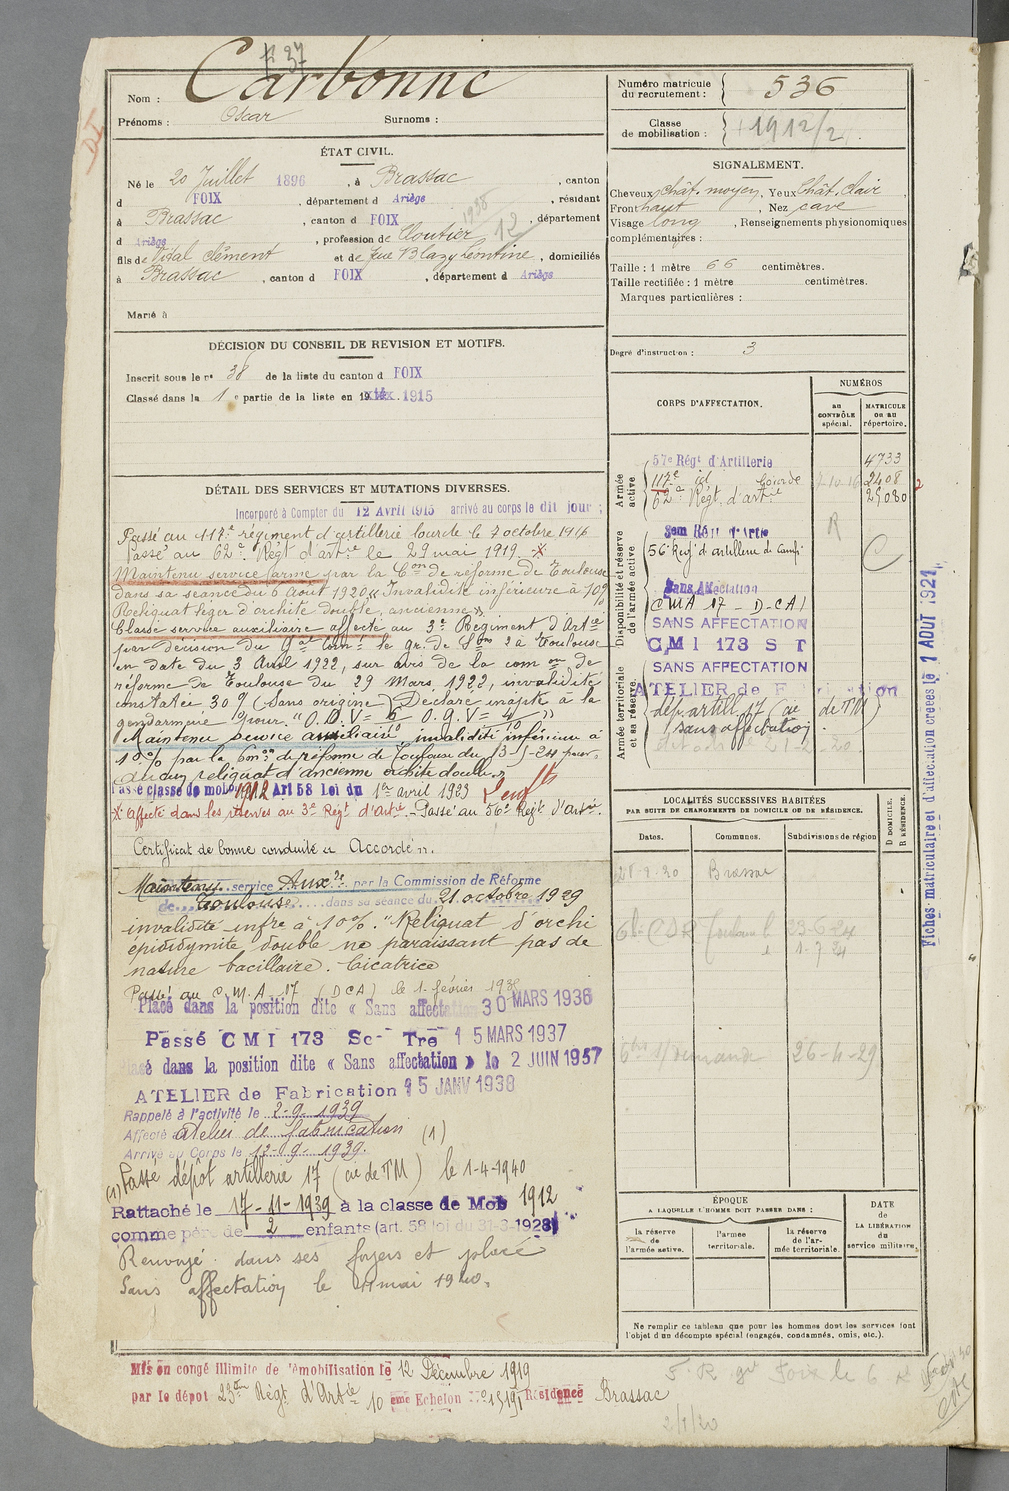 F 37
Nom : Carbonne
Prénoms : Oscar Surnoms :
ÉTAT CIVIL.
Né le 20 Juillet 1896, à Brassac, canton
d FOIX, département d Ariège, résidant
à Brassac, canton d FOIX, département
d Ariège, profession de Cloutier 12
fils de Vital Clément et de feue Blazy Léontine, domiciliés
à Brassac, canton d FOIX, département d Ariège
Marié à
DÉCISION DU CONSEIL DE REVISION ET MOTIFS.
Inscrit sous le n° 38 de la liste du canton d FOIX
Classé dans la 1e partie de la liste en 1915
DÉTAIL DES SERVICES ET MUTATIONS DIVERSES.
Incorporé à Compter du 12 Avril 1915 arrivé au corps le dit jour ;
Passé au 117e régiment d'artillerie lourde le 7 octobre 1916
Passé au 62e Régt d'artie le 29 mai 1919. *
Maintenu service armé par la Con de réforme de Toulouse
dans sa séance du 6 Août 1920 « Invalidité inférieure à 10%
Reliquat léger d'orchite double, ancienne »
Classé service auxiliaire affecté au 3e Régiment d'Artie
par décision du Gal Comt le gr. de Sbons 2 à Toulouse
en date du 3 Avril 1922, sur avis de la comon de
réforme de Toulouse du 29 Mars 1922, invalidité
constatée 30% (Sans origine) Déclaré inapte à la
gendarmerie pour "O.D.V= 5 O.g.V= 4"
Maintenu service auxiliaire invalidité inférieure à
10% par la Comon de réforme de Toulouse du pour
reliquat d'ancienne orchite double »
Passé classe de mob 1912 Art 58 Loi du 1er avril 1923
* Affecté dans les réserves au 3e Régt d'Artie - Passé au 56e Régt d'Artie.
Certificat de bonne conduite « Accordé ».
Maintenu service Auxre par la Commission de Réforme
de Toulouse dans sa séance du 21 octobre 1929
invalidité infre à 10%. "Reliquat d'orchi
épididymite double ne paraissant pas de
nature bacillaire. Cicatrice
Passé au C.M.A. 17 (DCA) le 1 février 193
Placé dans la position dite « Sans affectation 30 MARS 1936
Passé CMI 173 Sc- Tre 15 MARS 1937
Placé dans la position dite « Sans affectation » le 2 JUIN 1937
ATELIER de Fabrication 15 JANV 1938
Rappelé à l'activité le 2-9-1939
Affecté atelier de fabrication (1)
Arrivé au Corps le 12-9-1939.
(1) Passé dépôt artillerie 17 (cie de TM) le 1-4-1940
Rattaché le 17-11-1939 à la classe de Mob 1912
comme père de 2 enfants (art. 58 loi du 31-3-1928)
Renvoyé dans ses foyers et placé
Sans affectation le mai 1940.
Mis en congé illimité de démobilisation le 12 Décembre 1919
par le dépôt 23ème Régt d'Artie 10 ème Echelon N° 15191 Résidence Brassac
Numéro matricule
du recrutement : 536
Classe
de mobilisation : 1912/2
SIGNALEMENT.
Cheveux Chât. moyen, Yeux Chât. Clair
Front haut, Nez cave
Visage long, Renseignements physionomiques
complémentaires :
Taille : 1 mètre 66 centimètres.
Taille rectifiée : 1 mètre centimètres.
Marques particulières :
Degré d'instruction : 3
CORPS D'AFFECTATION.
NUMÉROS
au
CONTRÔLE
spécial.
MATRICULE
OU AU
répertoire.
Armée
active
57e Régt d'Artillerie 4733
117e id lourde 7-10-16 2408
62e Régt d'artie 25080
Disponibilité et réserve
de l'armée active
3em Régt d'Artie R
56 Régt d'artillerie de Camp. C
Sans Affectation
CMA 17 - D-CA
SANS AFFECTATION
CMI 173 S T
SANS AFFECTATION
Armée territoriale
et sa réserve.
ATELIER de Fabrication
dép artill 17 (cie de TM)
sans affectation
LOCALITÉS SUCCESSIVES HABITÉES
PAR SUITE DE CHANGEMENTS DE DOMICILE OU DE RÉSIDENCE.
Dates. Communes. Subdivisions de région
D DOMICILE.
R RÉSIDENCE.
Brassac
23-6-24
1-7-24
26-4-29
ÉPOQUE
A LAQUELLE L'HOMME DOIT PASSER DANS :
la réserve
de
l'armée active.
l'armée
territoriale.
la réserve
de l'ar-
mée territoriale.
DATE
de
LA LIBÉRATION
du
service militaire.
Ne remplir ce tableau que pour les hommes dont les services font
l'objet d'un décompte spécial (engagés, condamnés, omis, etc.).
2/1/20
Fiches matriculaire et d'affectation créées le 1 AOUT 1921